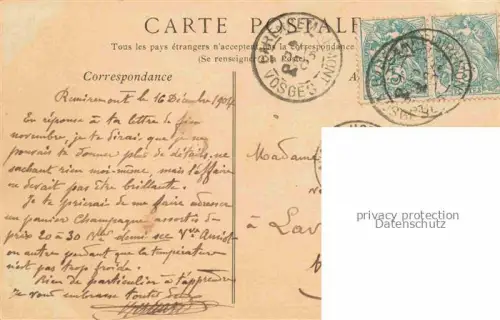 CARTE POSTALE
Tous les pays étrangers n'acceptent pas la correspondance
(Se renseigner à la Poste)
Correspondance
REMIREMONT
VOSGES
Remiremont le 16 Décembre 1904
En réponse à ta lettre de fin
novembre, je te dirais que je ne
pouvais te donner plus de détails, ne
sachant rien moi-même, mais l'affaire
ne devait pas être brillante.
Je te prierai de me faire adresser
un panier Champagne assortis de
prix 20 à 30 Nlle demi sec Vve
ou autre pendant que la température
n'est pas trop froide.
Rien de particulier à t'apprendre
Je vous embrasse toutes deux
Madame
à Lav
privacy protection
Datenschutz